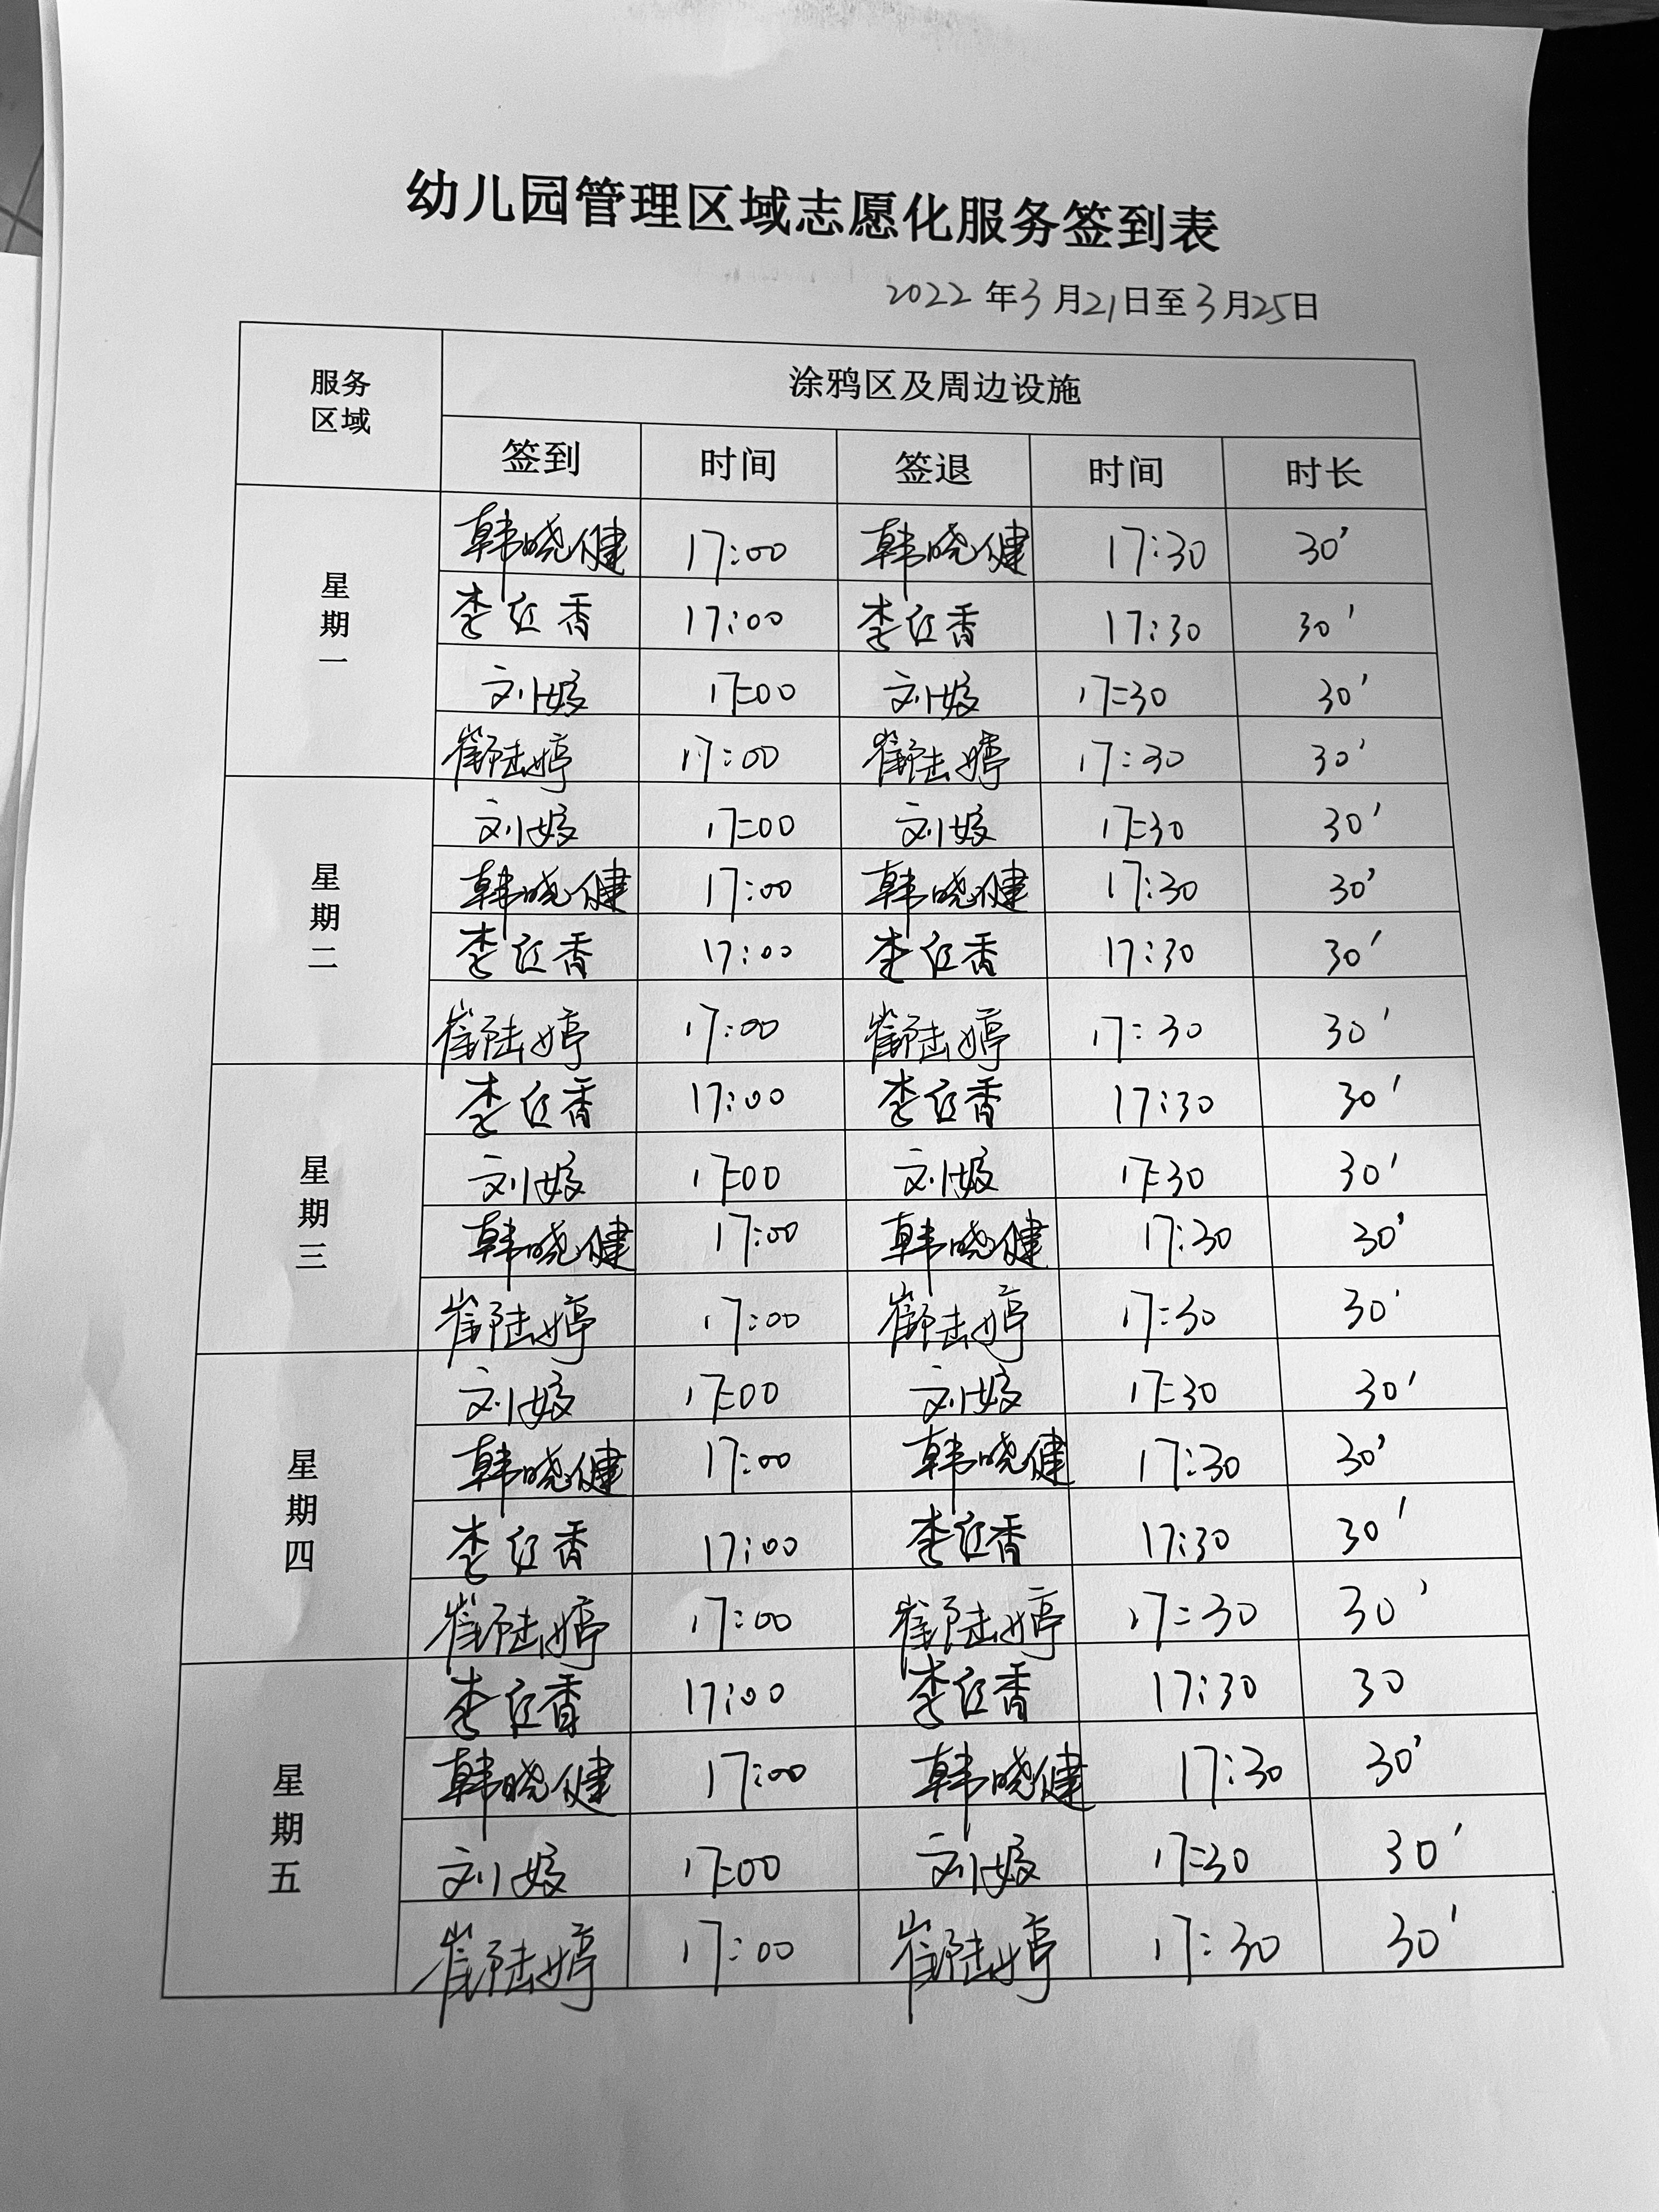 幼儿园管理区域志愿化服务签到表
2022年3月21日至3月25日
服务区域 涂鸦区及周边设施
签到 时间 签退 时间 时长
星期一
韩晓健 17:00 韩晓健 17:30 30'
李红香 17:00 李红香 17:30 30'
刘 17:00 刘 17:30 30'
崔陆婷 17:00 崔陆婷 17:30 30'
星期二
刘 17:00 刘 17:30 30'
韩晓健 17:00 韩晓健 17:30 30'
李红香 17:00 李红香 17:30 30'
崔陆婷 17:00 崔陆婷 17:30 30'
星期三
李红香 17:00 李红香 17:30 30'
刘 17:00 刘 17:30 30'
韩晓健 17:00 韩晓健 17:30 30'
崔陆婷 17:00 崔陆婷 17:30 30'
星期四
刘 17:00 刘 17:30 30'
韩晓健 17:00 韩晓健 17:30 30'
李红香 17:00 李红香 17:30 30'
崔陆婷 17:00 崔陆婷 17:30 30'
星期五
李红香 17:00 李红香 17:30 30
韩晓健 17:00 韩晓健 17:30 30'
刘 17:00 刘 17:30 30'
崔陆婷 17:00 崔陆婷 17:30 30'